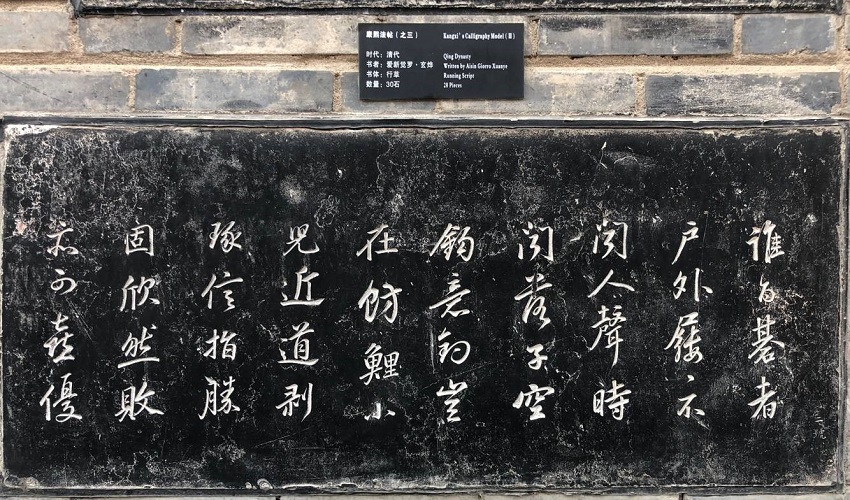 康熙法帖（之三） Kangxi's Calligraphy Model (Ⅲ)
时代：清代 Qing Dynasty
书者：爱新觉罗·玄烨 Written by Aisin Giorro Xuanye
书体：行草 Running Script
数量：30石 28 Pieces
誰与碁者
户外屨不
聞人聲時
聞落子空
鈎意釣豈
在魴鯉小
兒近道剥
琢信指勝
固欣然敗
亦可喜優